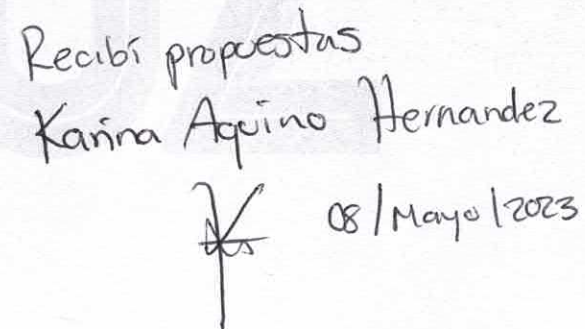 Recibí propuestas
Karina Aquino Hernandez
08/Mayo/2023